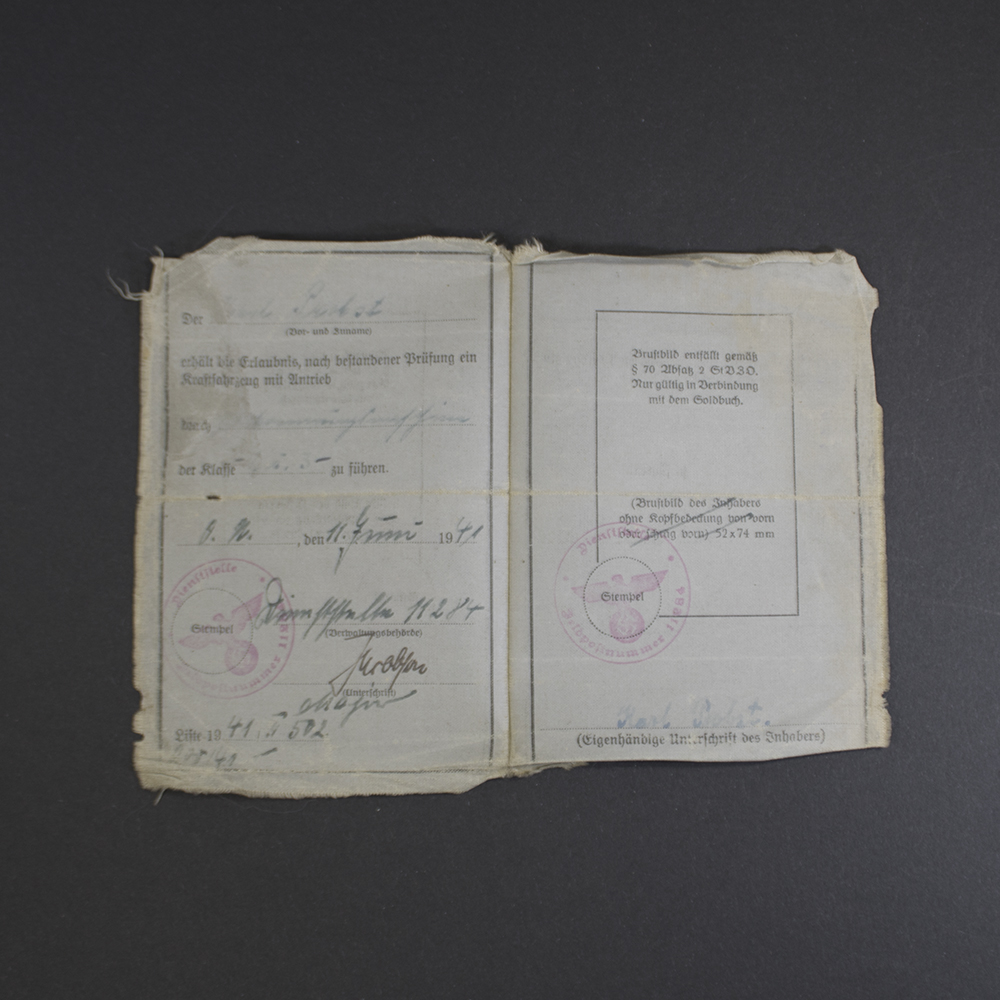 Der Karl Probst
(Vor- und Zuname)
erhält die Erlaubnis, nach bestandener Prüfung ein
Kraftfahrzeug mit Antrieb
durch
der Klasse zu führen.
O. U. , den 11. Juni 1941
Dienststelle
Stempel
Dienststelle 11284
(Verwaltungsbehörde)
(Unterschrift)
Major
Liste 1941. 502.
Brustbild entfällt gemäß
§ 70 Absatz 2 StVZO.
Nur gültig in Verbindung
mit dem Soldbuch.
(Brustbild des Inhabers
ohne Kopfbedeckung von vorn
oder schräg vorn) 52x74 mm
Dienststelle
Stempel
Feldpostnummer 11284
Karl Probst.
(Eigenhändige Unterschrift des Inhabers)